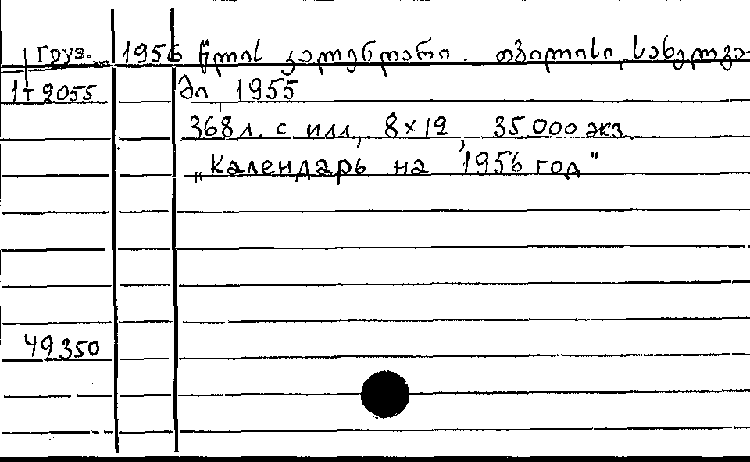 Груз. 1956 წლის კალენდარი. თბილისი, სახელგა-
1т 2055 მი, 1955
368 л. с илл., 8×12, 35.000 экз.
„Календарь на 1956 год"
49350